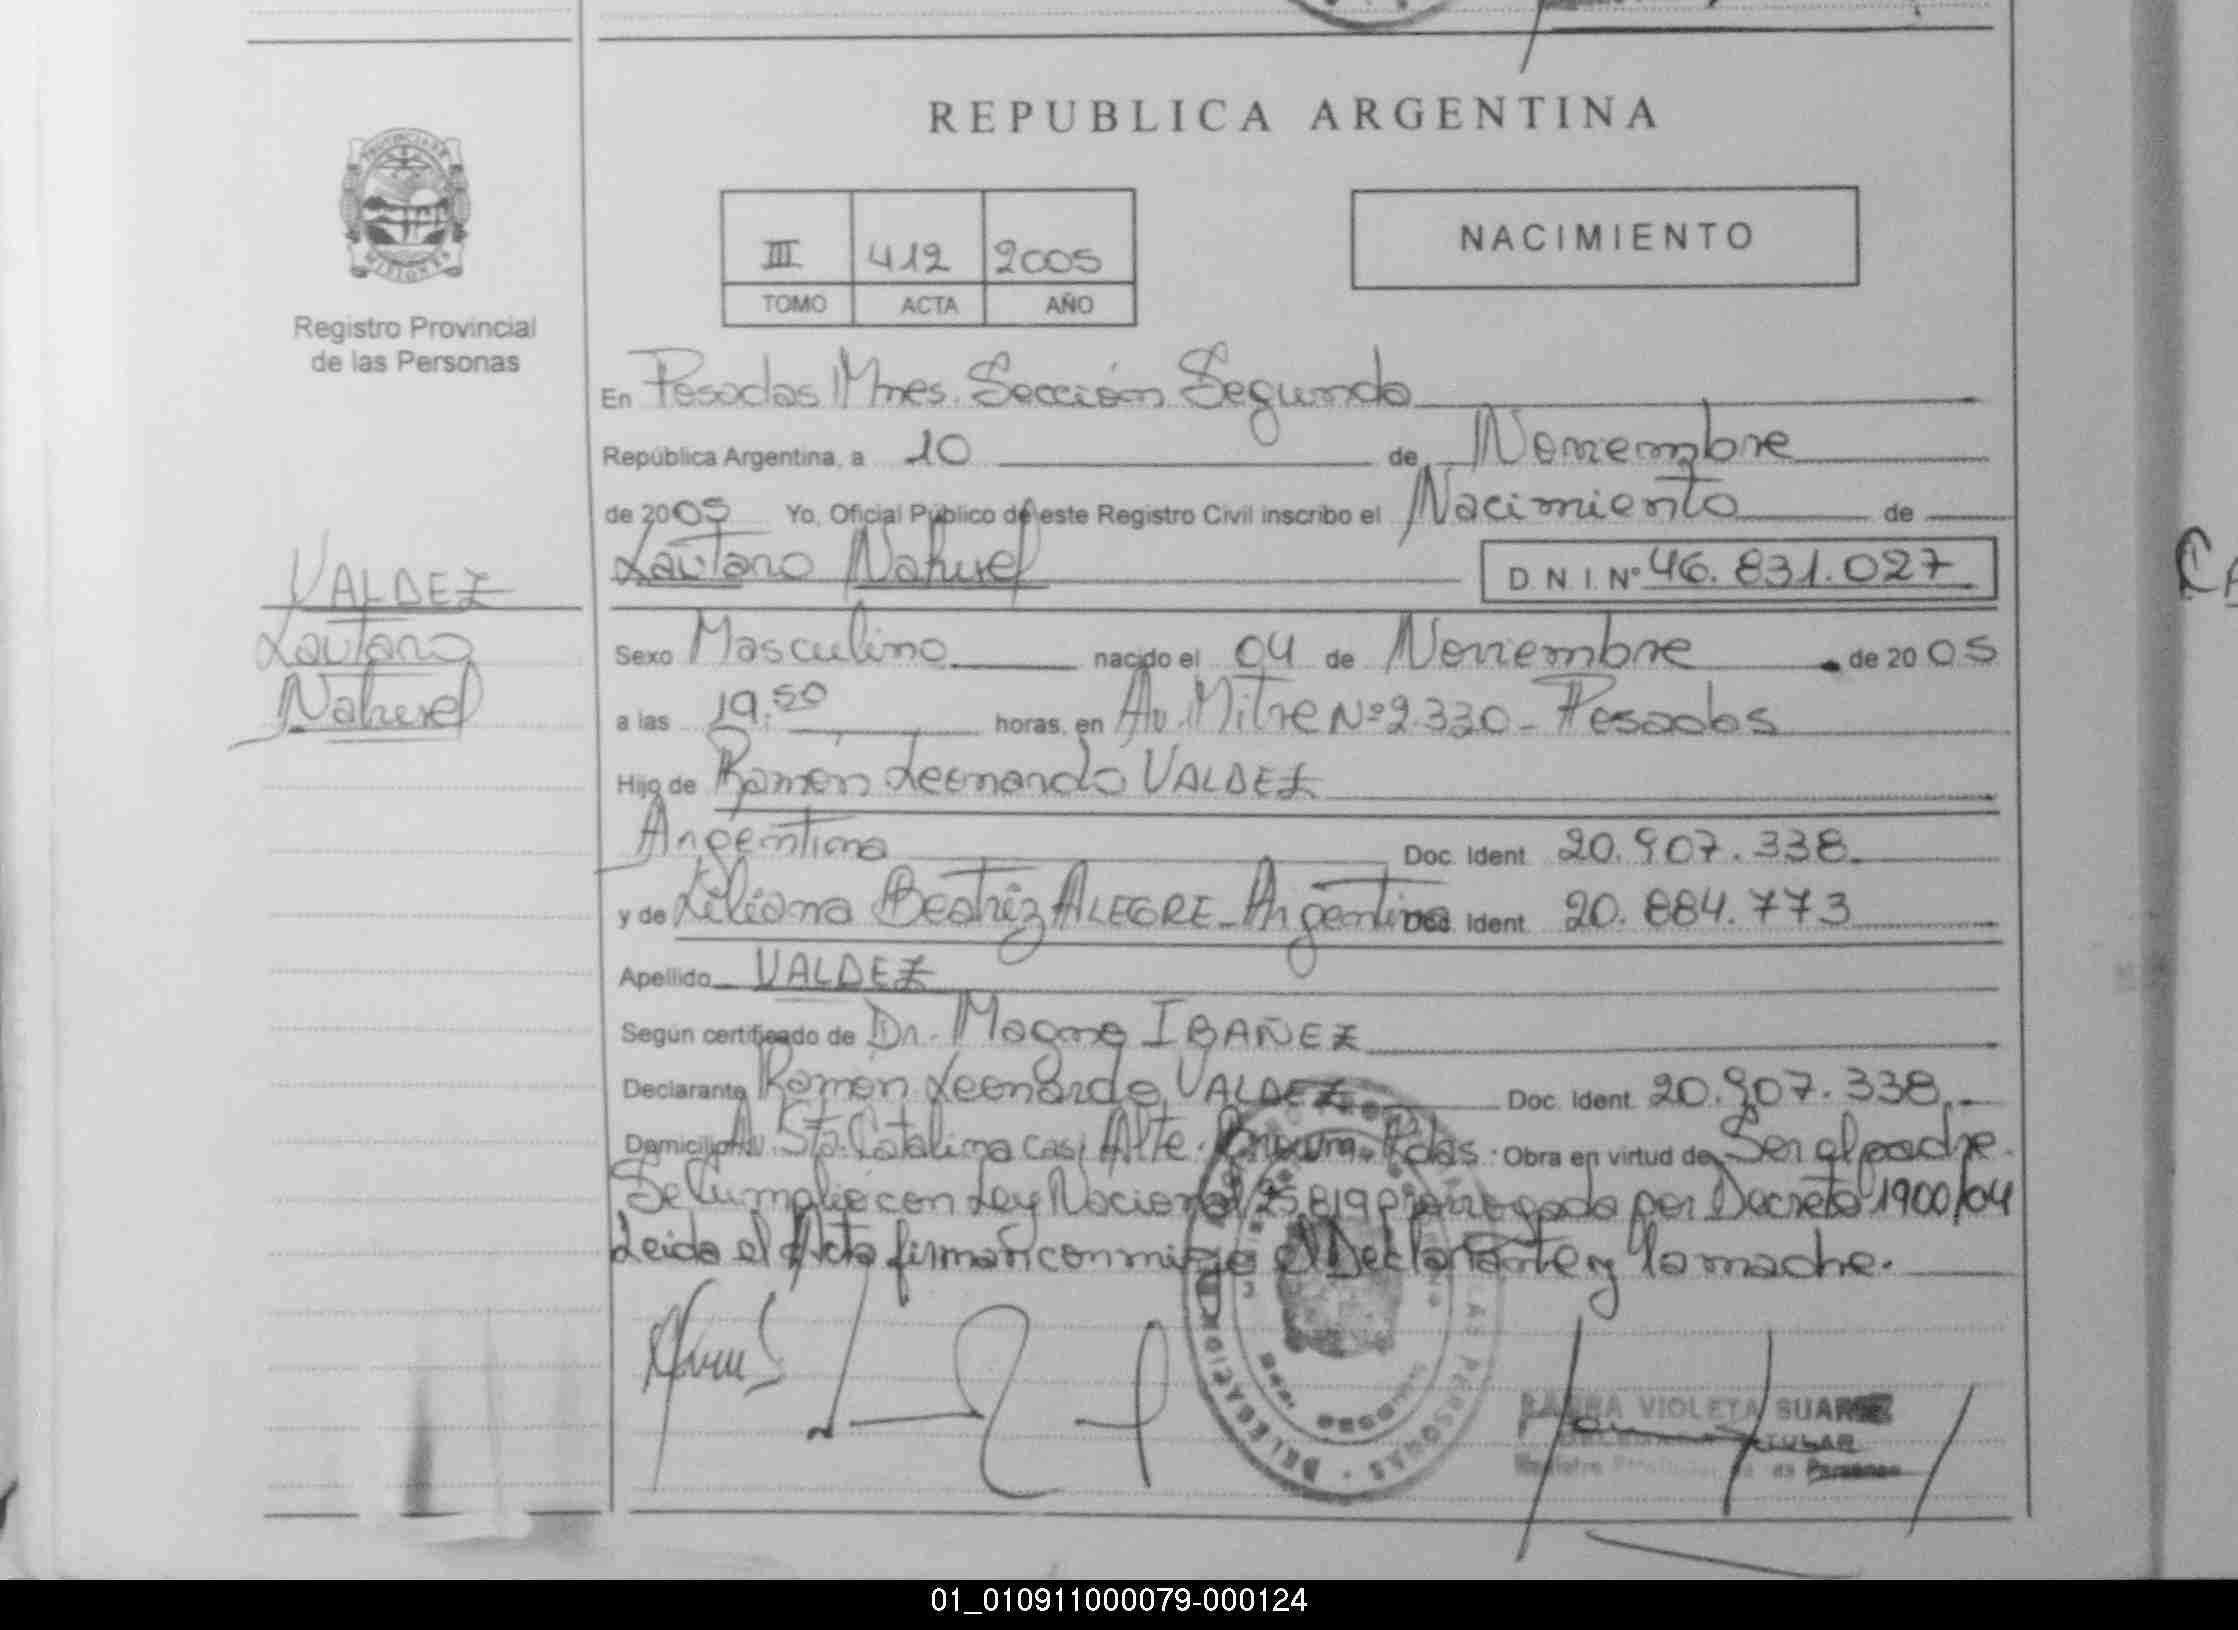 REPUBLICA ARGENTINA
PROVINCIA DE
MISIONES
Registro Provincial
de las Personas
III 412 2005
TOMO ACTA AÑO
NACIMIENTO
En Posadas Mnes. Sección Segunda
República Argentina, a 10 de Noviembre
de 2005 Yo, Oficial Público de este Registro Civil inscribo el Nacimiento de
Lautaro Nahuel D.N.I. Nº 46.831.027
VALDEZ
Lautaro
Nahuel
Sexo Masculino nacido el 04 de Noviembre de 2005
a las 19:50 horas, en Av. Mitre Nº 2.330 - Posadas
Hijo de Ramón Leonardo VALDEZ
Argentina Doc. Ident. 20.907.338
y de Liliana Beatriz ALEGRE - Argentina Doc. Ident. 20.884.773
Apellido VALDEZ
Según certificado de Dr. IBAÑEZ
Declarante Ramón Leonardo VALDEZ Doc. Ident. 20.907.338
Domicilio Av. Sta. Catalina casi Alte. Pdas. Obra en virtud de Ser el padre.
Se Cumplió con Ley Nacional 25.819 prorrogada por Decreto 1900/04
Leida el Acta firman conmigo el Declarante y la madre.
VIOLETA SUAREZ
TITULAR
Registro Provincial de las Personas
01_010911000079-000124